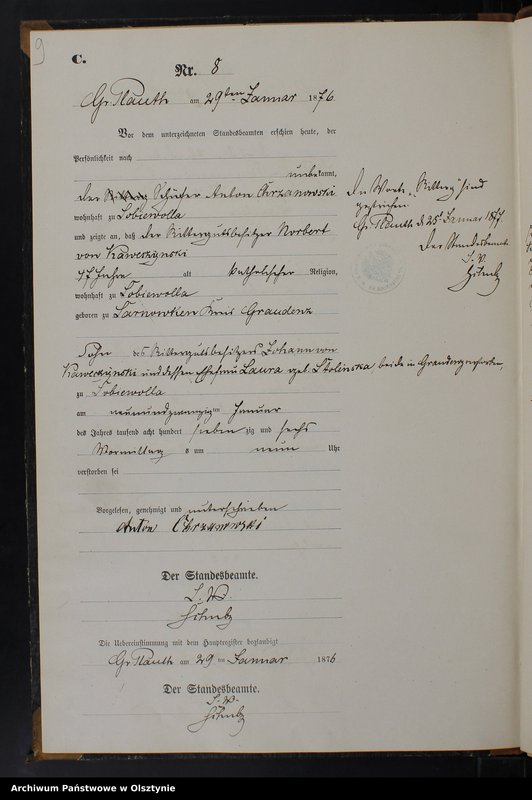 9
C.
Nr. 8
Gr. Plauth am 29ten Januar 1876
Vor dem unterzeichneten Standesbeamten erschien heute, der
Persönlichkeit nach
unbekannt,
der Schäfer Anton Chrzanowski
wohnhaft zu Lobiewolla
und zeigte an, daß der Rittergutsbesitzer Norbert
von Kawerzynski
47 Jahre alt katholischer Religion,
wohnhaft zu Tobiewolla
geboren zu Tarnowken Kreis Graudenz
Sohn des Rittergutsbesitzers Johann von
Kawerzynski und dessen Ehefrau Laura geb. Stolinska beide in Graudenz
zu Tobiewolla
am neunundzwanzigten Januar
des Jahres tausend acht hundert sieben zig und sechs
Vormittags um neun Uhr
verstorben sei
Vorgelesen, genehmigt und unterschrieben
Anton Chrzanowski
Der Standesbeamte.
I. V.
Die Uebereinstimmung mit dem Hauptregister beglaubigt
Gr. Plauth am 29 ten Januar 1876
Der Standesbeamte.
I. V.
Die Worte "Ritterg" sind
gestrichen
Gr. Plauth d. 25t Januar 1877
Der Standesbeamte
I. V.
Archiwum Państwowe w Olsztynie